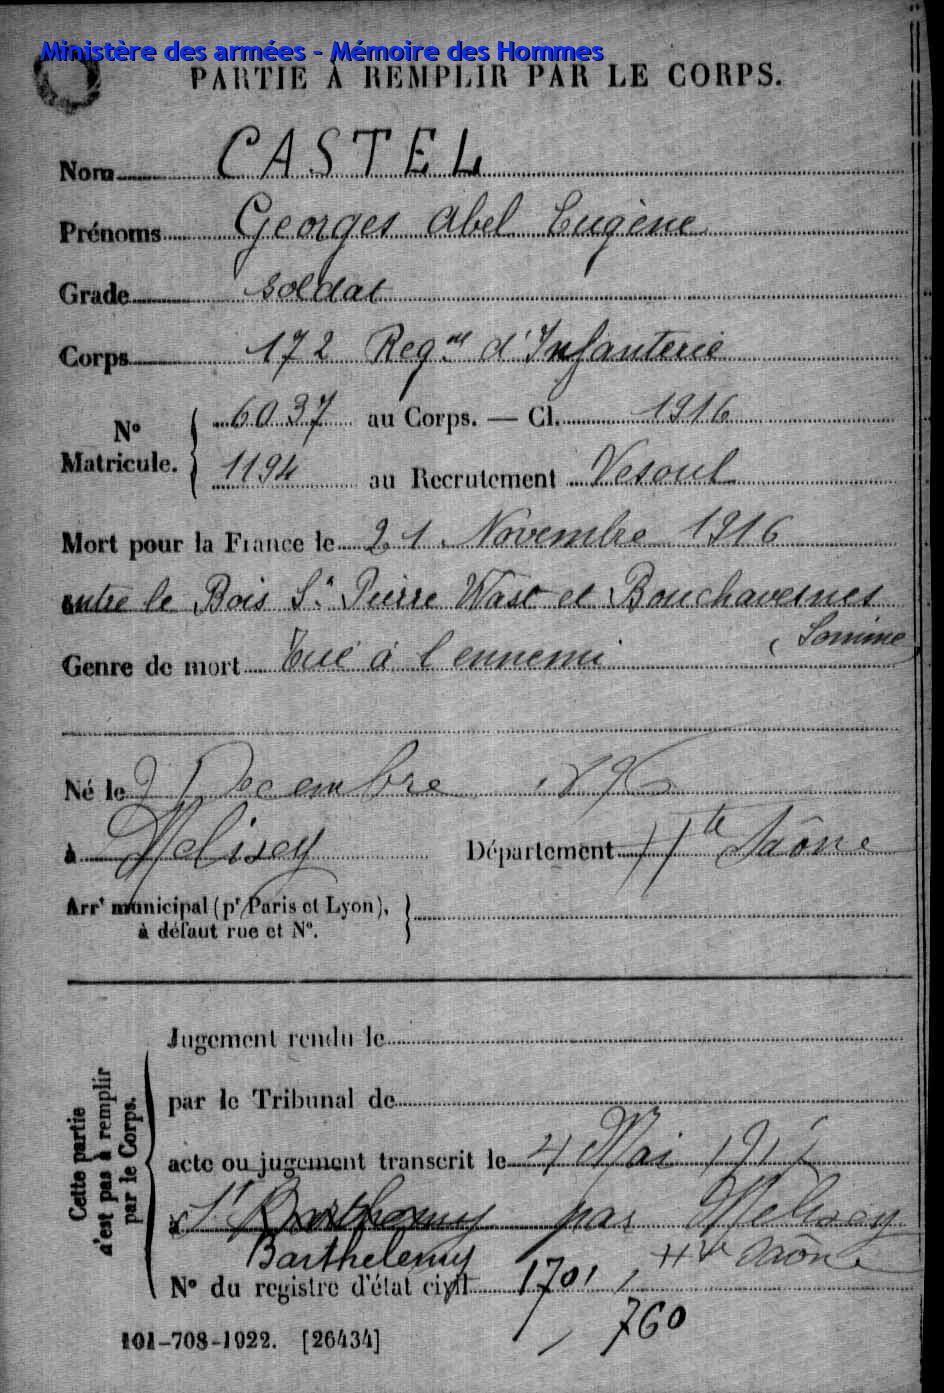 Ministère des armées - Mémoire des Hommes
PARTIE À REMPLIR PAR LE CORPS.
Nom CASTEL
Prénoms Georges Abel Eugène
Grade soldat
Corps 172 Reg.nt d'Infanterie
N° Matricule. { 6037 au Corps. — Cl. 1916
1194 au Recrutement Vesoul
Mort pour la France le 21 Novembre 1916
entre le Bois St Pierre Wast et Bouchavesnes
(Somme)
Genre de mort Tué à l'ennemi
Né le 2 Décembre 1896
à Melisey Département Hte Saône
Arrt municipal (pr Paris et Lyon), }
à défaut rue et N°.
Cette partie n'est pas à remplir par le Corps. {
Jugement rendu le
par le Tribunal de
acte ou jugement transcrit le 4 Mai 1917
à St par Melisey
Barthelemy Hte Saône
N° du registre d'état civil 1701
760
101-708-1922. [26434]